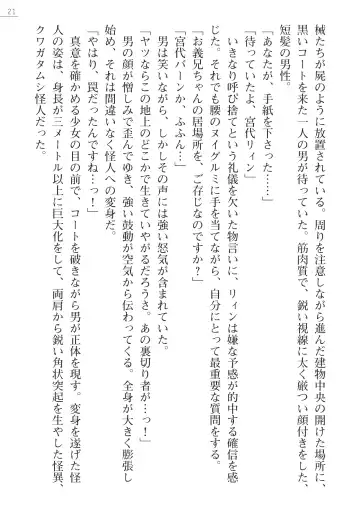 21
械たちが屍のように放置されている。周りを注意しながら進んだ建物中央の開けた場所に、
黒いコートを来た一人の男が待っていた。筋肉質で、鋭い視線に太く厳つい顔付きをした、
短髪の男性。
「あなたが、手紙を下さった……」
「待っていたよ、宮代リィン」
いきなり呼び捨てという礼儀を欠いた物言いに、リィンは嫌な予感が的中する確信を感
じた。それでも腰のヌイグルミに手を当てながら、自分にとって最重要な質問をする。
「お義兄ちゃんの居場所を、ご存じなのですか？」
「宮代バーンか、ふふん…」
男は笑いながら、しかしその声には強い怒気が含まれていた。
「ヤツならこの地上のどこかで生きていやがるだろうさ。あの裏切り者が…っ！」
男の顔が憎しみで歪んでゆき、強い鼓動が空気から伝わってくる。全身が大きく膨張し
始め、それは間違いなく怪人への変身だ。
「やはり、罠だったんですね…っ！」
真意を確かめる少女の目の前で、コートを破きながら男が正体を現す。変身を遂げた怪
人の姿は、身長が三メートル以上に巨大化をして、両肩から鋭い角状突起を生やした怪異、
クワガタムシ怪人だった。